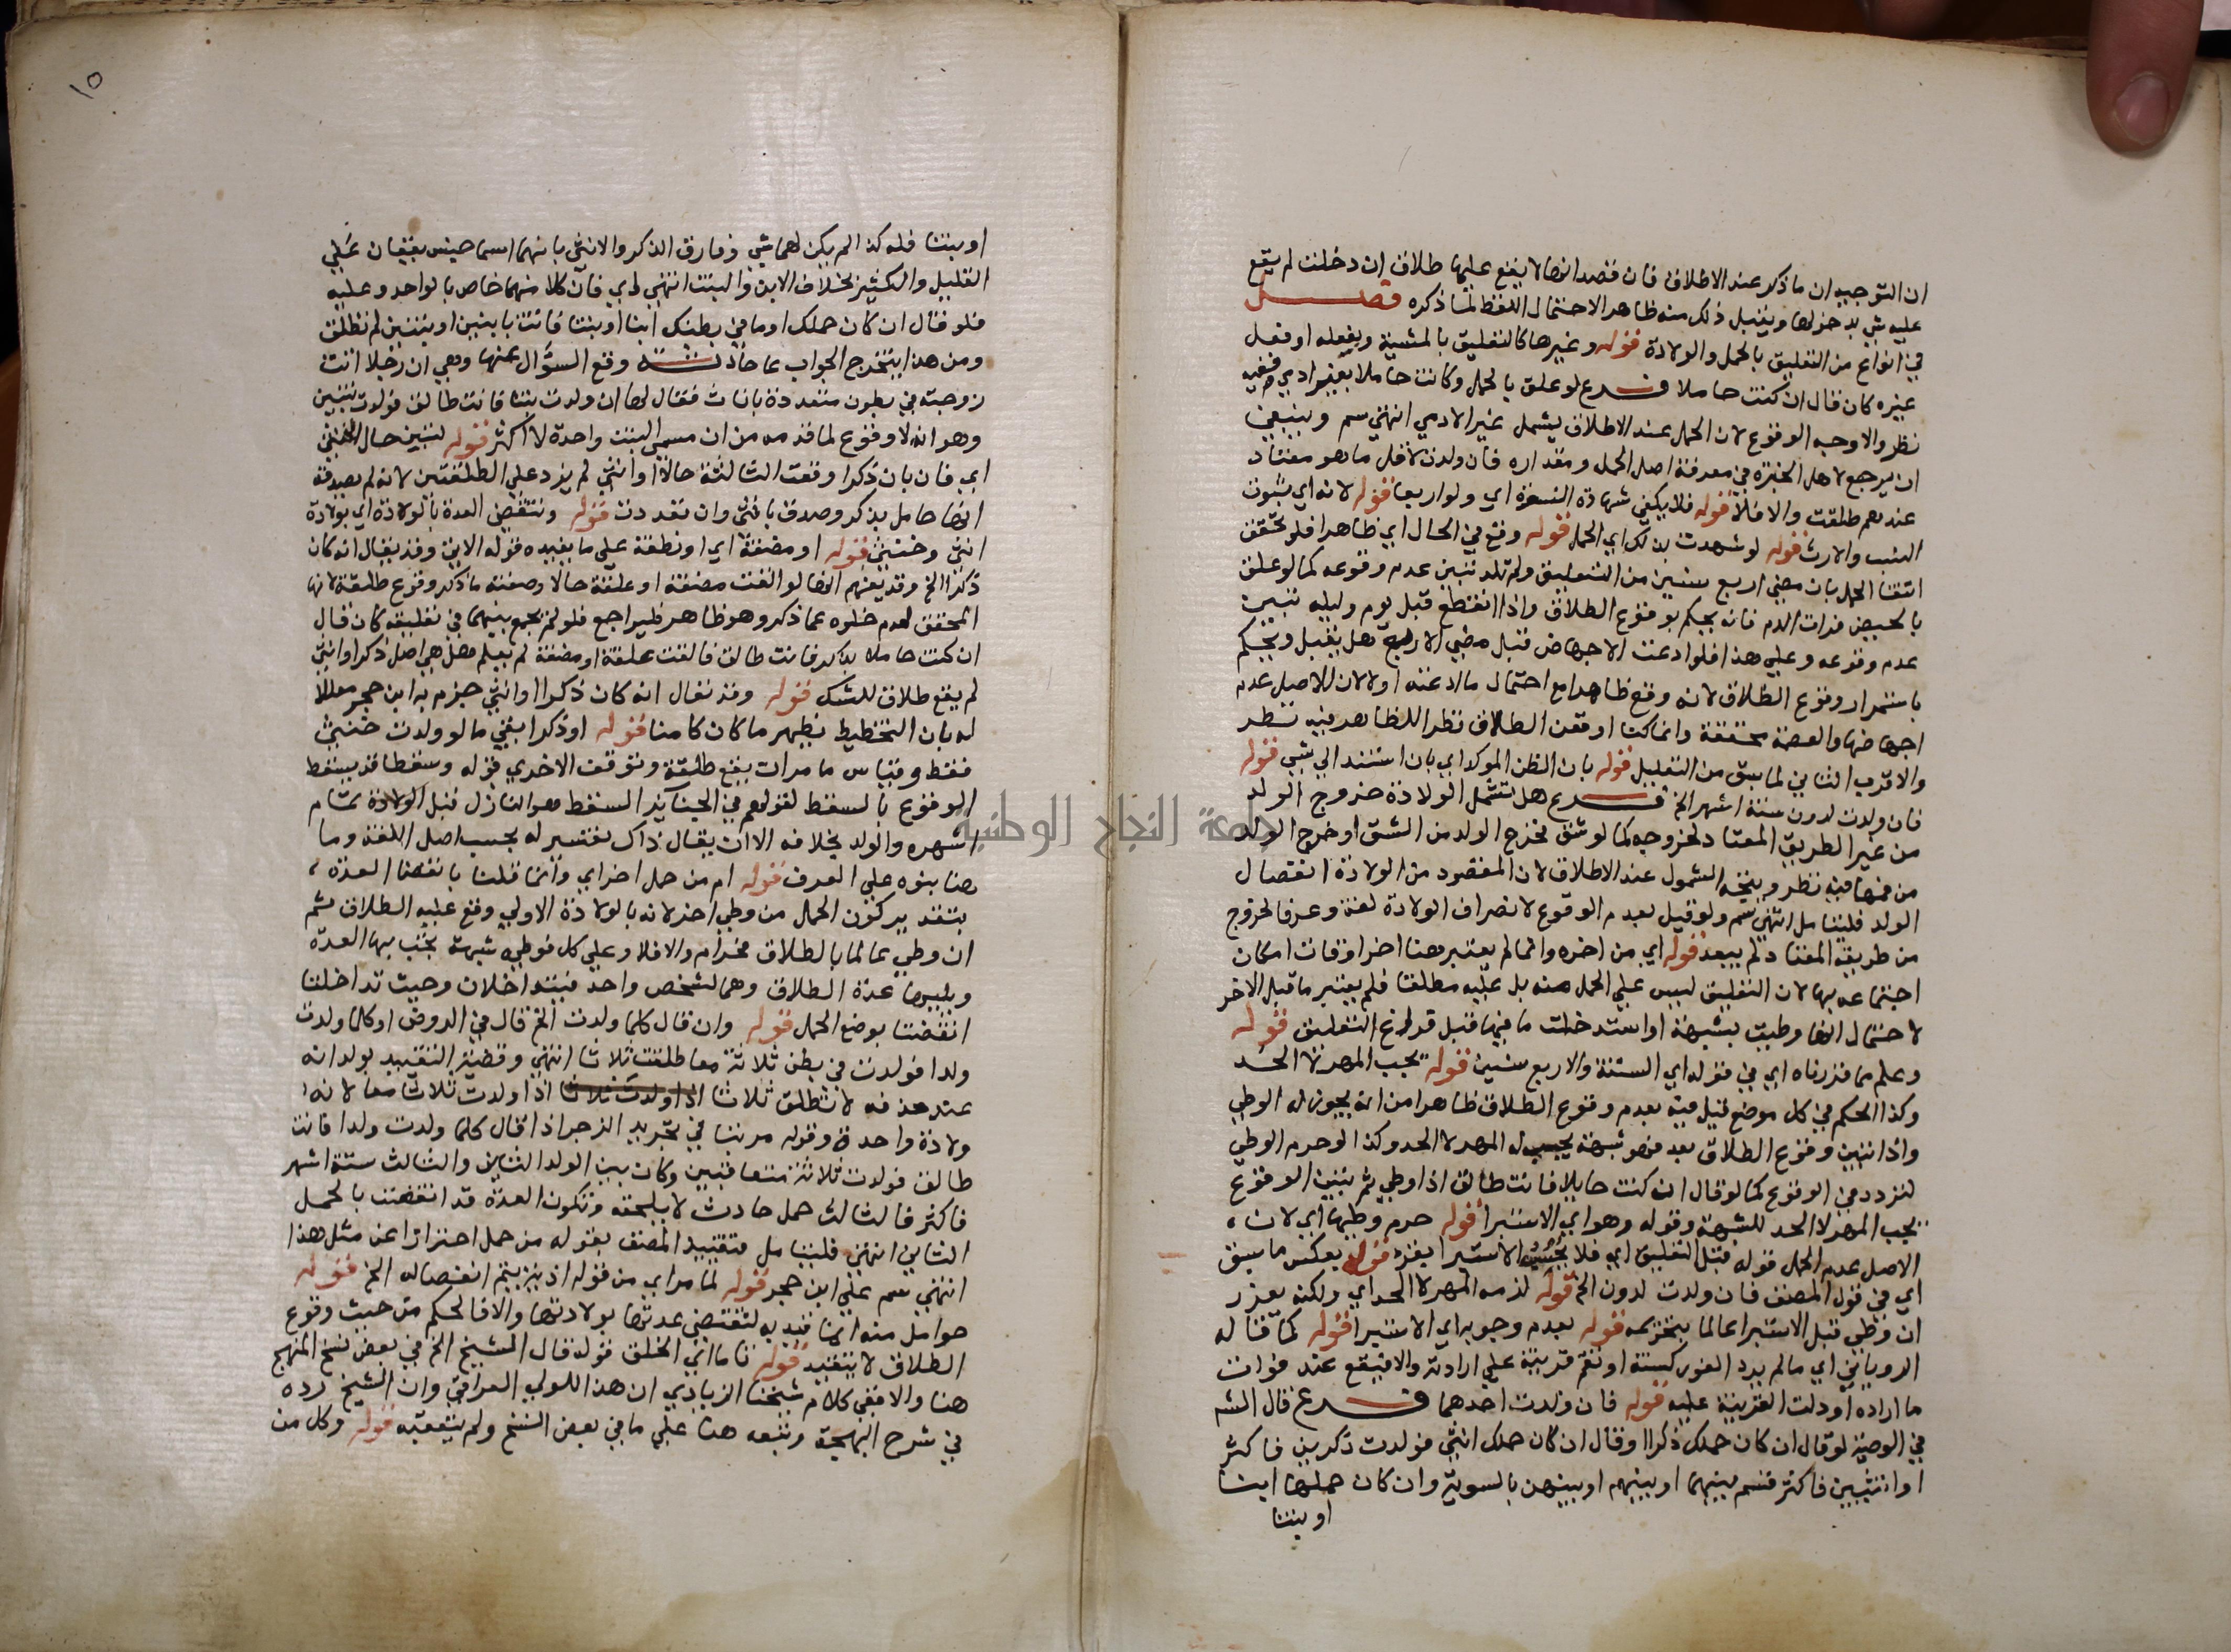 ان التوجيه ان ما ذكر عند الاطلاق فان قصد انها لا يقع عليها طلاق ان دخلت لم يقع
عليه شي بدخولها ويقبل ذلك منه ظاهرا لاحتمال اللفظ لما ذكره فصل
في انواع من التعليق بالحمل والولادة قوله وغيرها كالتعليق بالمشية وبفعله او فعل
غيره كان قال ان كنت حاملا فرع لو علق بالحمل وكانت حاملا بغير ادمي ففيه
نظر والاوجه الوقوع لان الحمل عند الاطلاق يشمل غير الادمي انتهي سم وينبغي
ان يرجع لاهل الخبرة في معرفة اصل الحمل ومقداره فان ولدت لاقل ما هو معتاد
عندهم طلقت والا فلا قوله فلا يكفي شهادة النسوة اي ولو اربعا قوله لانه اي بثبوت
النسب والارث قوله لو شهدت بذلك اي الحمل قوله وقع في الحال اي ظاهرا فلو تحقق
انتفا الحمل بان مضي اربع سنين من التعليق ولم تلد تبين عدم وقوعه كما لو علق
بالحيض فرات الدم فانه يحكم بوقوع الطلاق واذا انقطع قبل يوم وليله تبين
عدم وقوعه وعلي هذا فلو ادعت الاجهاض قبل مضي الاربع هل يقبل ويحكم
باستمرار وقوع الطلاق لانه وقع ظاهرا مع احتمال ما ادعته اولا لان الاصل عدم
اجهاضها والعصمة محققة وانما كنا اوقعن الطلاق نظرا للظاهر فيه نظر
والاقرب الثاني لما سبق من التعليل قوله بان الظن الموكد اي بان استند الي شي قوله
فان ولدت لدون ستة اشهر الخ فرع هل تشمل الولادة خروج الولد
من غير الطريق المعتاد لخروجه كما لو شق فخرج الولد من الشق او خرج الولد
من فمها فيه نظر ويتجه الشمول عند الاطلاق لان المقصود من الولادة انفصال
الولد فليتامل انتهي سم ولو قيل بعدم الوقوع لانصراف الولادة لغة وعرفا لخروج
من طريقه المعتاد لم يبعد قوله اي من اخره وانما لم يعتبر هنا اخر اوقات امكان
اجتماعه بها لان التعليق ليس علي الحمل منه بل عليه مطلقا فلم يعتبر ما قبل الاخر
لاحتمال انها وطيت بشبهة او استدخلت ما فيها قبل فراغ التعليق قوله
وعلم مما قررناه اي في قوله اي الستة والاربع سنين قوله يجب المهر لا الحد
وكذا الحكم في كل موضع قيل فيه بعدم وقوع الطلاق ظاهرا من انه يجوز له الوطي
واذا تبين وقوع الطلاق بعد فهو شبهة يجب له المهر لا الحد وكذا لو حرم الوطي
لتردد في الوقوع كما لو قال ان كنت حايلا فانت طالق اذا وطي ثم تبين الوقوع
يجب المهر لا الحد للشبهة وقوله وهو اي الاستبرا قوله حرم وطيها اي لان
الاصل عدم الحمل قوله قبل التعليق اي فلا يجب الاستبرا بقرء قوله بعكس ما سبق
اي في قول المصنف فان ولدت لدون الخ قوله لزمه المهر لا الحد اي ولكنه يعزر
ان وطي قبل الاستبرا عالما بتحريمه قوله بعدم وجوبه اي الاستبرا قوله كما قاله
الروياني اي ما لم يرد الفور كسنة او تقم قرينة علي ارادته والا فيقع عند فوات
ما اراده او دلت القرينة عليه قوله فان ولدت احدهما فرع قال الشم
في الوصية لو قال ان كان حملك ذكرا او قال ان كان حملك انثي فولدت ذكرين فاكثر
او انثيين فاكثر قسم بينهما او بينهم او بينهن بالسوية وان كان حملها ابنا
او بنتا
١٥
او بنتا فله كذا لم يكن لهما شي وفارق الذكر والانثي بانهما اسما جنس يقعان علي
القليل والكثير بخلاف الابن والبنت انتهي اي فان كلا منهما خاص بالواحد وعليه
فلو قال ان كان حملك او ما في بطنك ابنا او بنتا فاتت بابنين او بنتين لم تطلق
ومن هذا يتخرج الجواب عما حادثة وقع السؤال عنها وهي ان رجلا اتت
زوجته في بطون متعددة بانات فقال لها ان ولدت بنتا فانت طالق فولدت بنتين
وهو انه لا وقوع لما قدمه من ان مسمي البنت واحدة لا اكثر قوله لتبين حال الخنثي
اي فان بان ذكرا وقعت الثالثة حالا او انثي لم يزد علي الطلقتين لانه لم يصدق
انها حامل بذكر وصدق بانثي وان تعددت قوله وتنقضي العدة بالولادة اي بولادة
انثي وخنثي قوله او مضغة اي او نطفة علي ما يفيده قوله الاين وقد يقال انه كان
ذكرا الخ وقد يفهم انها لو القت مضغة او علقة حالا وصفته ما ذكر وقوع طلقة لانها
المحقق لعدم خلوه عما ذكر وهو ظاهر فليراجع فلو لم يجمع بينهما في تعليقه كان قال
ان كنت حاملا بذكر فانت طالق فالقت علقة او مضغة لم يعلم هل هي اصل ذكر او انثي
لم يقع طلاق للشك قوله وقد نقال انه كان ذكرا او انثي جزم به ابن حجر معللا
له بان التخطيط يظهر ما كان كامنا قوله او ذكرا بقي ما لو ولدت خنثي
فقط وقياس ما مر ان يقع طلقة وتوقف الاخري قوله وسقطا قد يسقط
الوقوع بالسقط لقولهم في الجنايز السقط هو النازل قبل الولادة تمام
اشهره والولد بخلافه الا ان يقال ذاك تفسير له بحسب اصل اللغة وما
هنا بنوه علي العرف قوله ام من حمل اخر اي وانما قلنا بانقضا العدة
بتقدير كون الحمل من وطي اخر لانه بالولادة الاولي وقع عليه الطلاق ثم
ان وطي عالما بالطلاق فحرام والا فلا وعلي كل فوطي شبهة يجب بها العدة
ويلبها عدة الطلاق وهما لشخص واحد فيتداخلان وحيث تداخلتا
انقضتا بوضع الحمل قوله وان قال كلما ولدت الخ قال في الروض او كلما ولدت
ولدا فولدت في بطن ثلاثة معا طلقت ثلاثا انتهي وقضية التقييد بولد انه
عند حذفه لا تطلق ثلاثا اذا ولدت ثلاثا اذا ولدت ثلاثا معا لانه
ولادة واحدة وقوله مرتبا في تجريد الزجر اذا قال كلما ولدت ولدا فانت
طالق فولدت ثلاثة متعاقبين وكان بين الولد الثاني والثالث ستة اشهر
فاكثر فالثالث حمل حادث لا يلحقه وتكون العدة قد انقضت بالحمل
الثاني انتهي فليتامل فتقييد المصنف بقوله من حمل احترازا عن مثل هذا
انتهي سم علي ابن حجر قوله لما مر اي من قوله اذ بزينتم انفصاله الخ قوله
حوامل منه انما قيد به لتنقضي عدتها بولادتها والا فالحكم من حيث وقوع
الطلاق لا يتقيد قوله تاما اي الخلق قوله قال الشيخ الخ في بعض نسخ المنهج
هنا والا ففي كلام شيخنا الزيادي ان هذا للولي العراقي وان الشيخ رده
في شرح البهجة وتبعه هنا علي ما في بعض النسخ ولم يتعقبه قوله وكل من
جامعة النجاح الوطنية